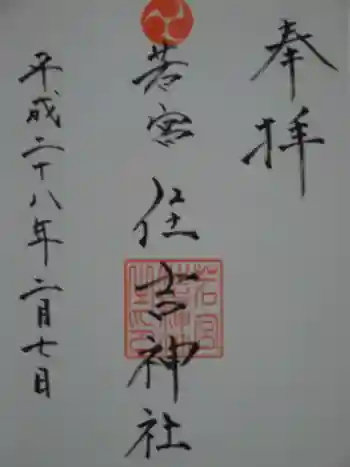 奉拝
若宮 住吉神社
平成二十八年二月七日